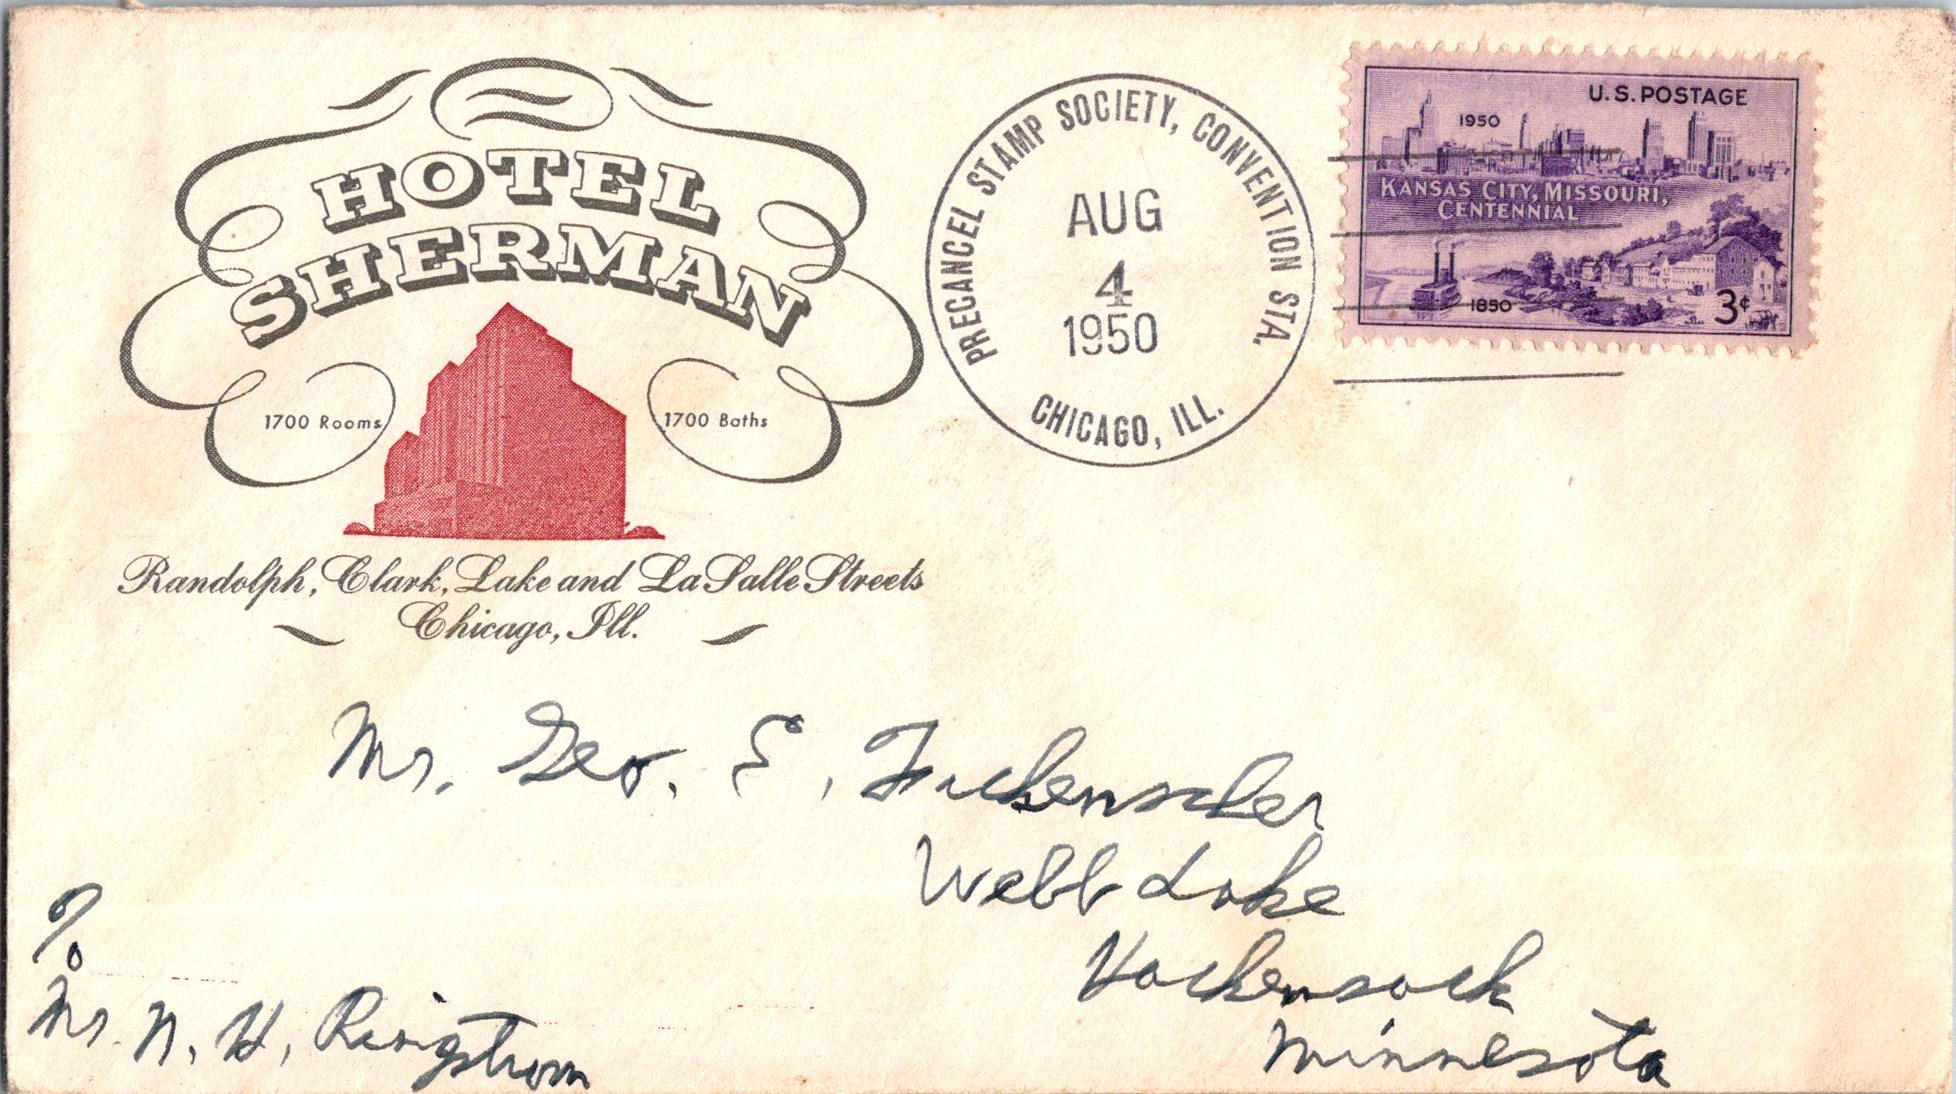 HOTEL
SHERMAN
1700 Rooms
1700 Baths
Randolph, Clark, Lake and La Salle Streets
Chicago, Ill.
PRECANCEL STAMP SOCIETY, CONVENTION STA.
AUG
4
1950
CHICAGO, ILL.
U.S. POSTAGE
1950
KANSAS CITY, MISSOURI,
CENTENNIAL
1850
3¢
Mr. Geo. E.
Webb Lake
Hackensack
Minnesota
%
Mr. N. H. Ringstrom